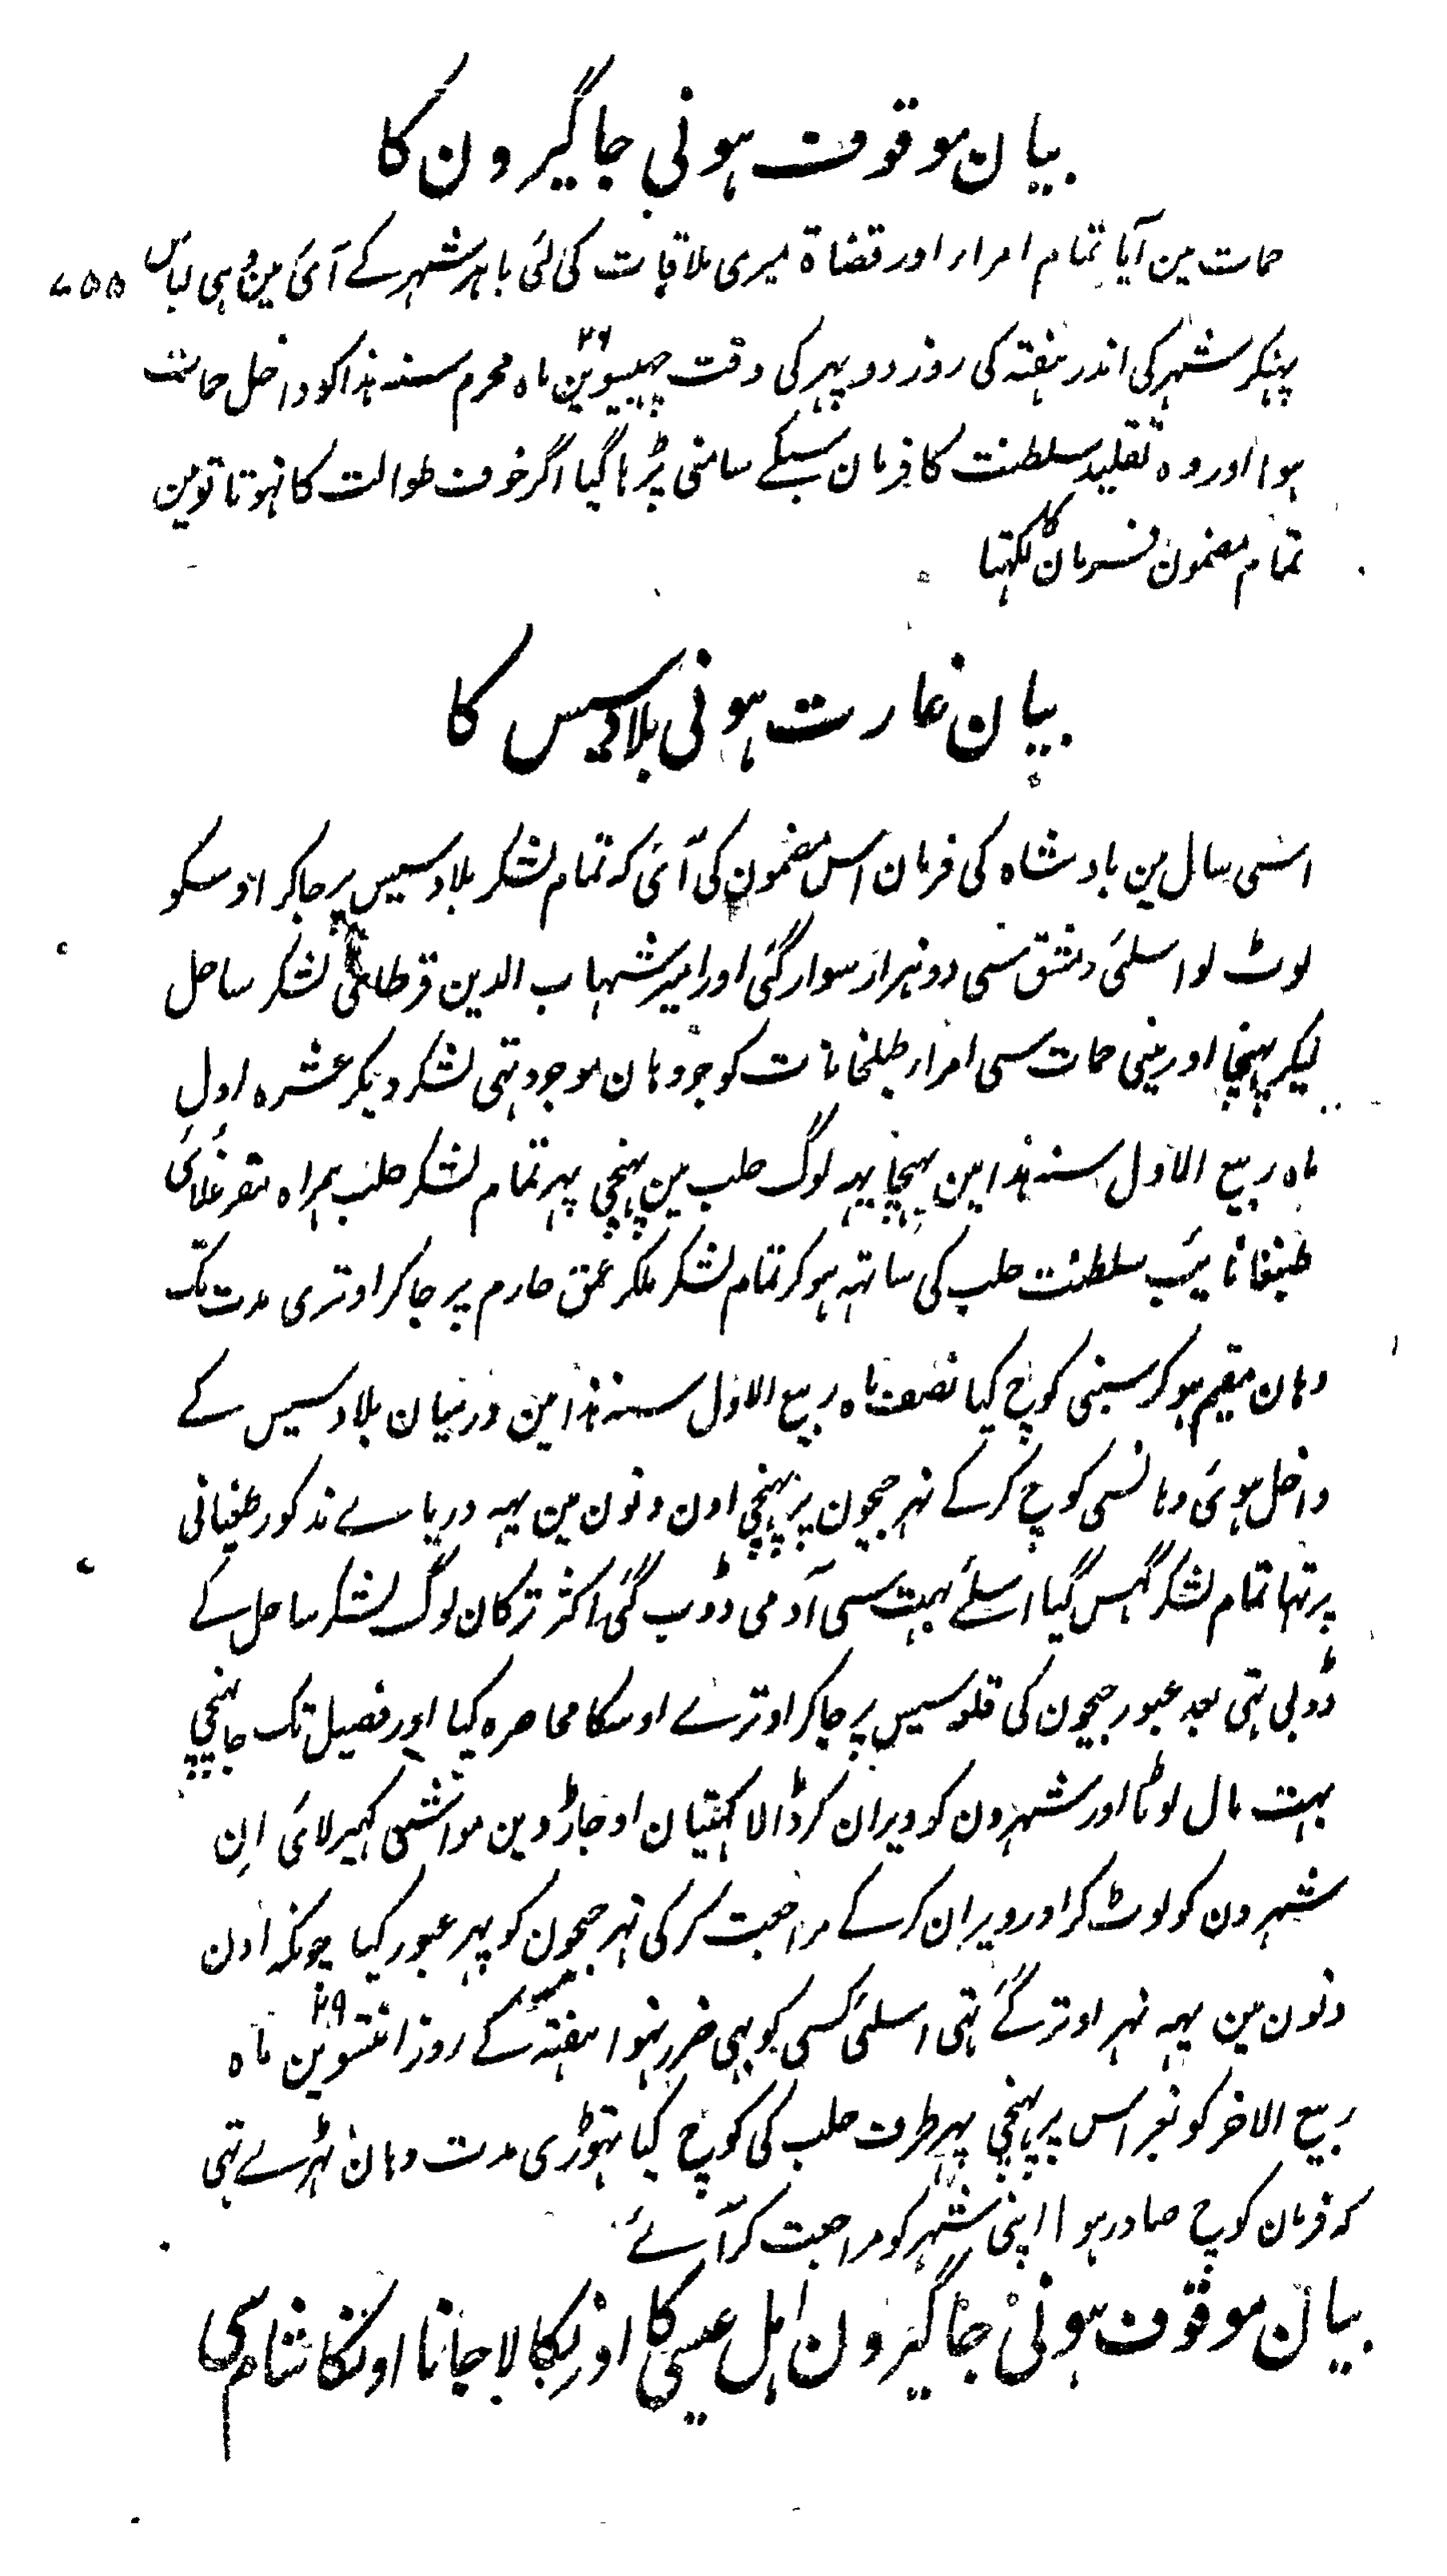 بیان موقوف ہونی جاگیرون کا
حمات مین آیا تمام امراء اور قضاۃ میری ملاقات کی لئی باہر شہر کے آئی مین وہی لباس ۷۵۵
پہنکر شہر کی اندر ہفتہ کی روز دوپہر کی وقت چہبیسوین ۲۶ ماہ محرم سنہ ہذا کو داخل حمات
ہوا اور وہ تقلید سلطنت کا فرمان سبکے سامنی پڑہا گیا اگر خوف طوالت کا نہوتا تو مین
تمام مضمون فرمان کا لکہتا
بیان غارت ہونی بلاد سیس کا
اسی سال مین بادشاہ کی فرمان اس مضمون کی آئی کہ تمام لشکر بلاد سیس پر جاکر اوسکو
لوٹ لو اسلئی دمشق سی دو ہزار سوار گئی اور امیر شہاب الدین قرطائی لشکر ساحل
لیکر پہنچا اور مینی حمات سی امراء طبلخانات کو جو وہان موجود تہی لشکر دیکر عشرہ اول
ماہ ربیع الاول سنہ ہذا مین بہیجا یہہ لوگ حلب مین پہنچی پہر تمام لشکر حلب ہمراہ
طنبغا نایب سلطنت حلب کی ساتہہ ہوکر تمام لشکر ملکر عمق حارم پر جاکر اوتری مدت تک
وہان مقیم ہوکر سبنی کوچ کیا نصف ماہ ربیع الاول سنہ ہذا مین درمیان بلاد سیس کے
داخل ہوئی وہانسی کوچ کرکے نہر جیحون پر پہنچی اون دنون مین یہہ دریاے مذکور طغیانی
پر تہا تمام لشکر گہس گیا اسلئے بہت سی آدمی ڈوب گئی اکثر ترکان لوگ لشکر ساحل کے
ڈوبی تہی بعد عبور جیحون کی قلعہ سیس پر جاکر اوترے اوسکا محاصرہ کیا اور فصیل تک جا پہنچی
بہت مال لوٹا اور شہرون کو ویران کرڈالا کہیتیان اوجاڑ دین مواشی گہیر لائی ان
شہرون کو لوٹ کر اور ویران کرکے مراجعت کرکی نہر جیحون کو پہر عبور کیا چونکہ اون
دنون مین یہہ نہر اوتر گئے تہی اسلئی کسی کو بہی ضرر نہوا ہفتہ کے روز انتیسوین ۲۹ ماہ
ربیع الاخر کو بغراس پر پہنچی پہر طرف حلب کی کوچ کیا تہوڑی مدت وہان ٹہرے تہی
کہ فرمان کوچ صادر ہوا اپنی شہر کو مراجعت کر آئے
بیان موقوف ہونی جاگیرون اہل عیسی کا اور نکالا جانا اونکا شام سی